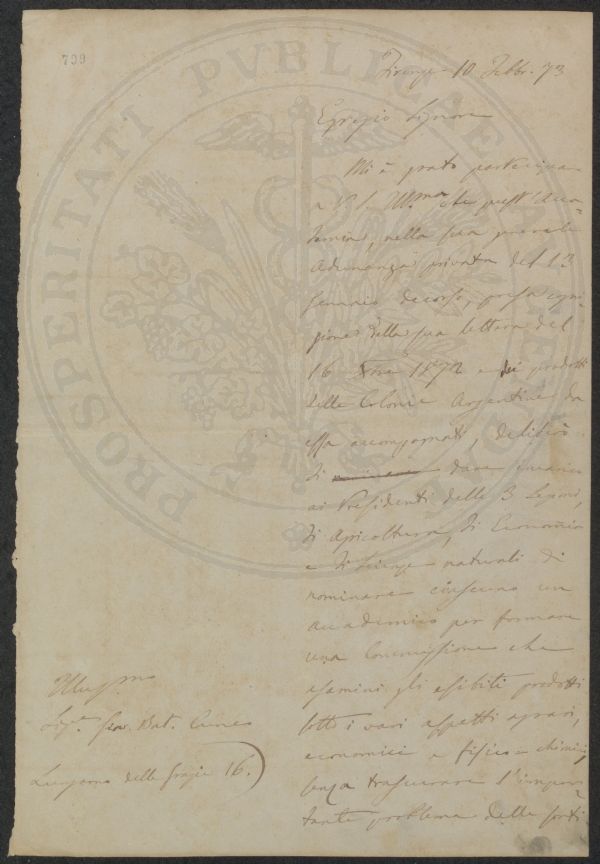 799
Firenze 10 Febbr. 73
Egregio Signore
Mi è grato partecipare
a V. S. Ill.ma che quest'Acca-
demia, nella sua
Adunanza privata del 12
Gennaio decorso, presa cogni-
zione della sua lettera del
16 9bre 1872 e dei prodotti
delle Colonie Argentine da
essa accompagnati, deliberò
di dare incarico
ai Presidenti delle 3 Sezioni,
di Agricoltura, di Economia
e di Scienze naturali di
nominare ciascuno un
accademico per formare
una Commissione che
esamini gli esibiti prodotti
sotto i vari aspetti agrari,
economici e fisico-chimici,
senza trascurare l'impor-
tante problema delle sorti
Illus.mo
Sig.r Gio. Bat. Cuneo
Lungarno delle Grazie 16.
PROSPERITATI PVBLICAE